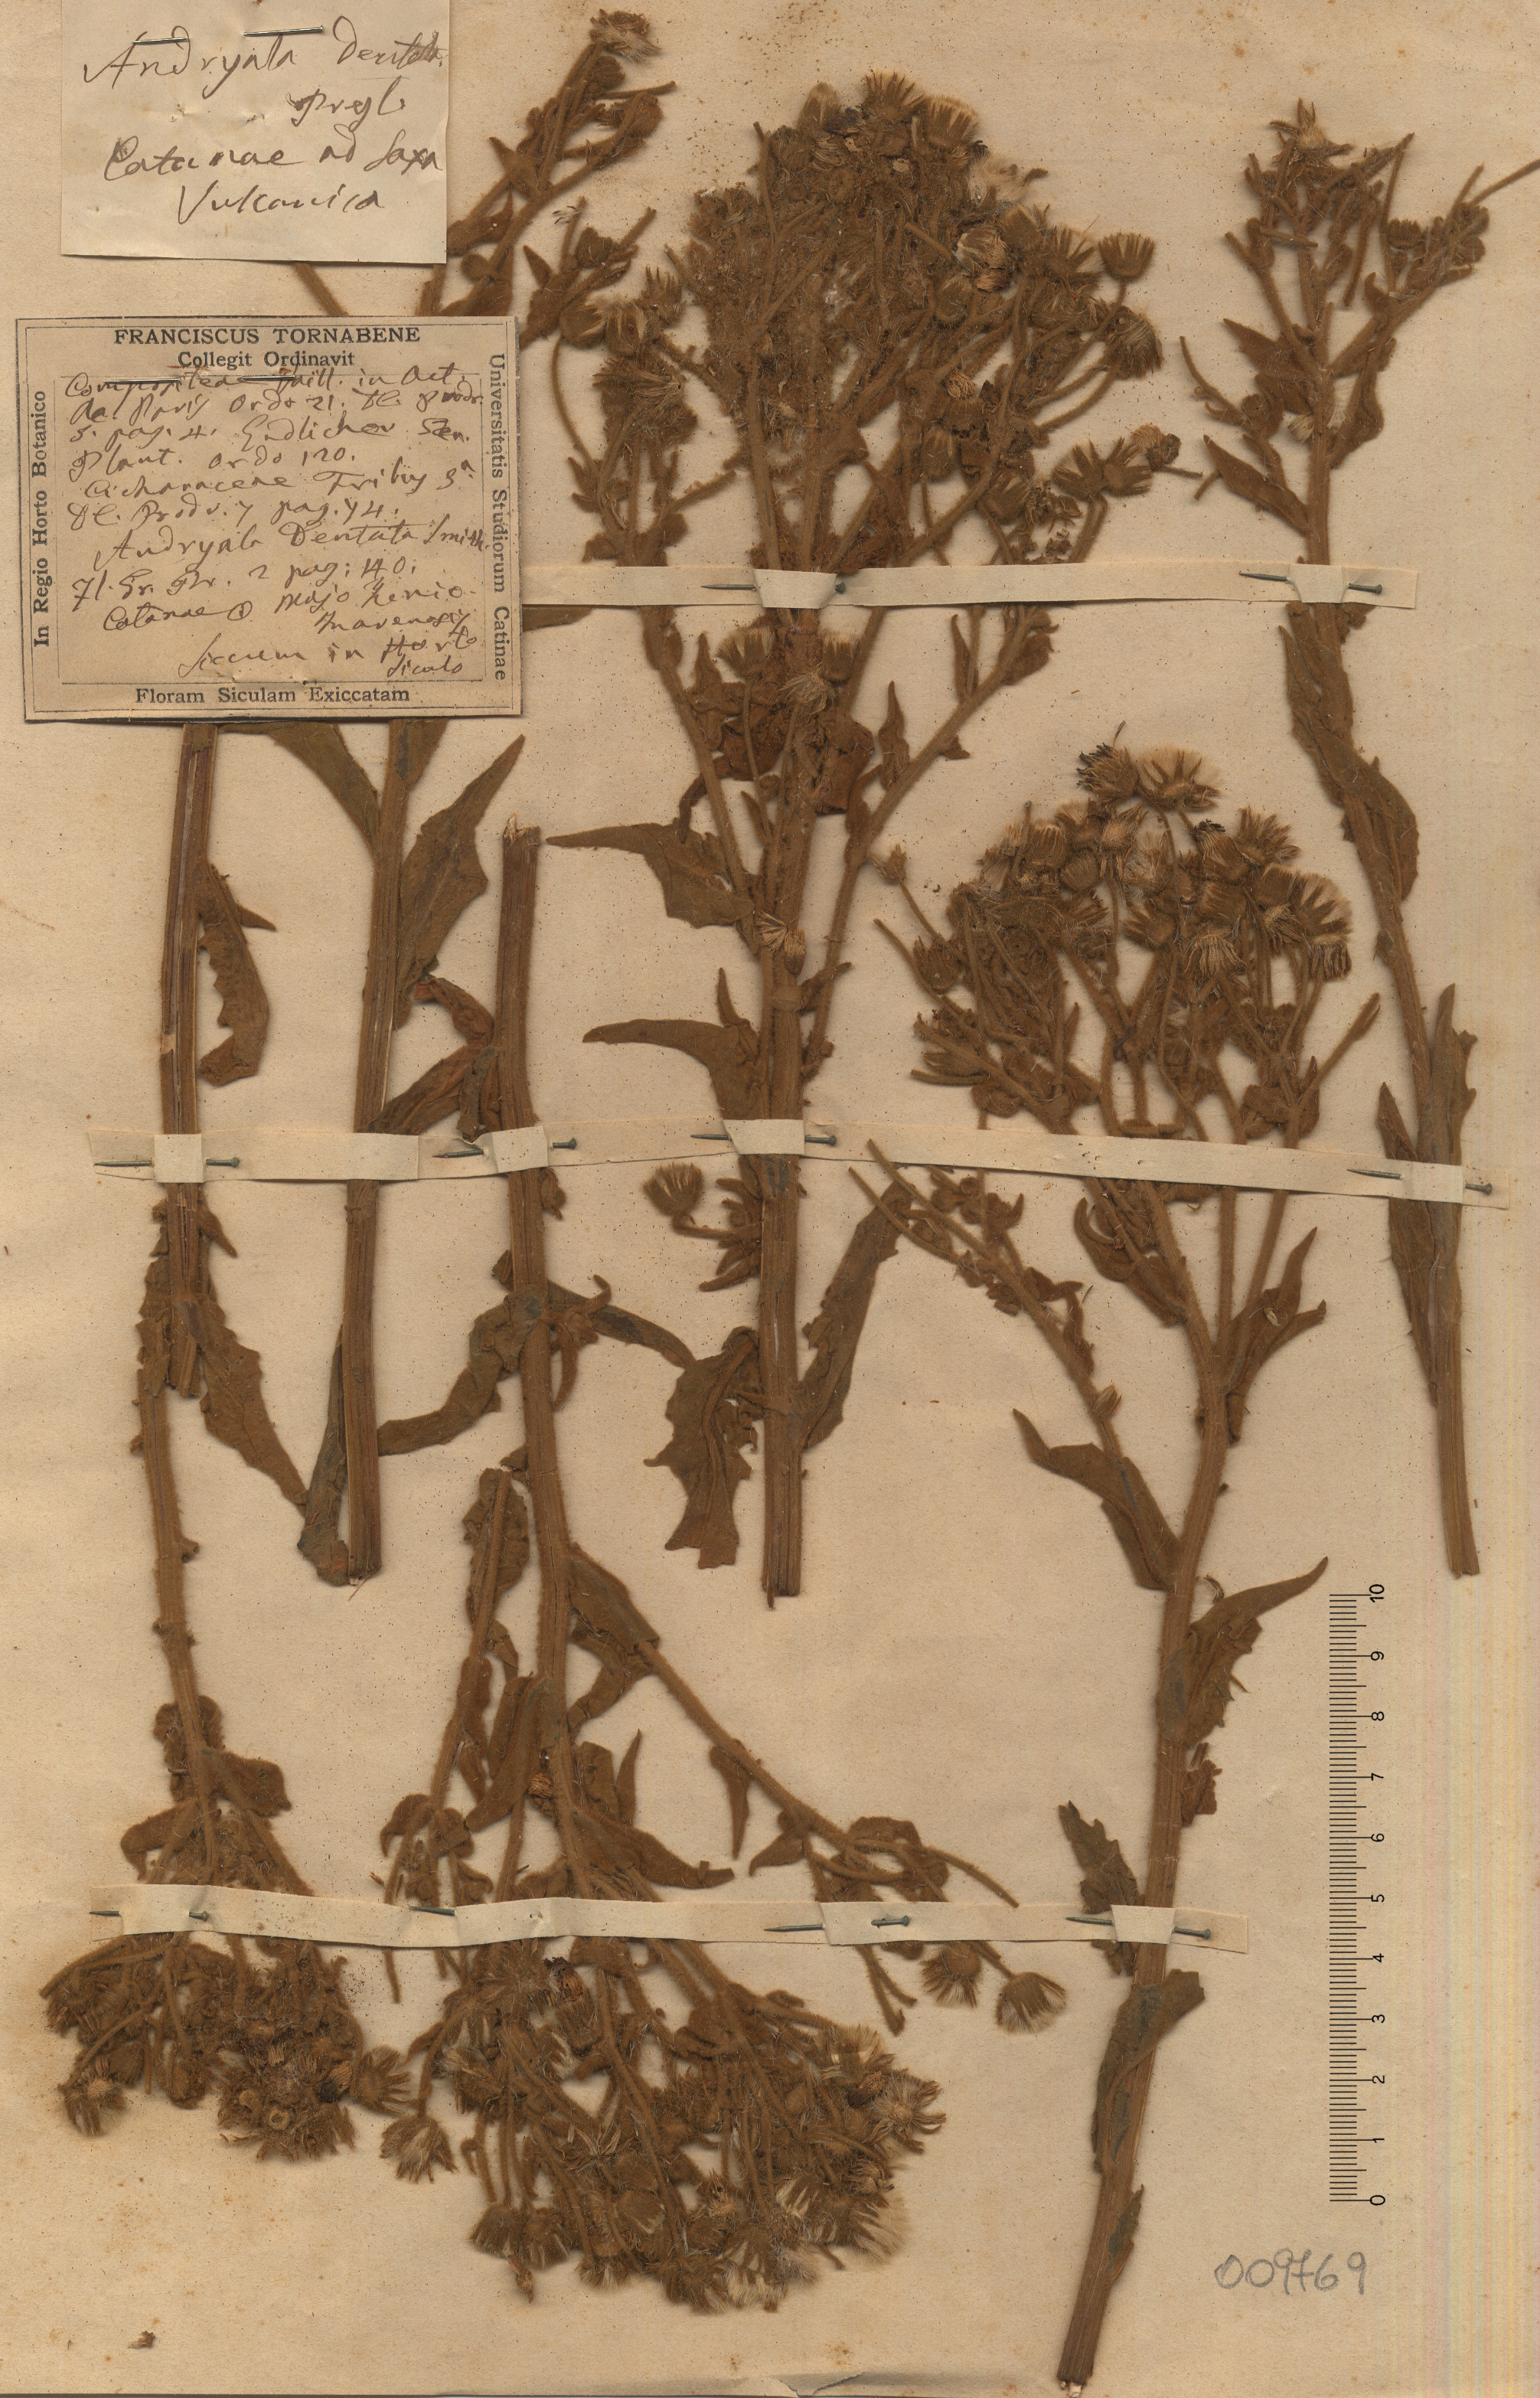 Andryala Dentata
Presl.
Catanae ad Saxa
Vulcanica
FRANCISCUS TORNABENE
Collegit Ordinavit
In Regio Horto Botanico
Universitatis Studiorum Catinae
Compositeae Vaill. in Act.
Ac. Paris Ordo 21. DC. Prodr.
5. pag. 4. Endlicher Gen.
Plant. ordo 120.
Cichoraceae Tribus 3a
DC. Prodr. 7 pag. 74.
Andryala Dentata Smith.
Fl. Gr. Pr. 2 pag: 140.
Catanae ① Majo
Siccum in Horto
Siculo
Floram Siculam Exiccatam
10
9
8
7
6
5
4
3
2
1
0
009769